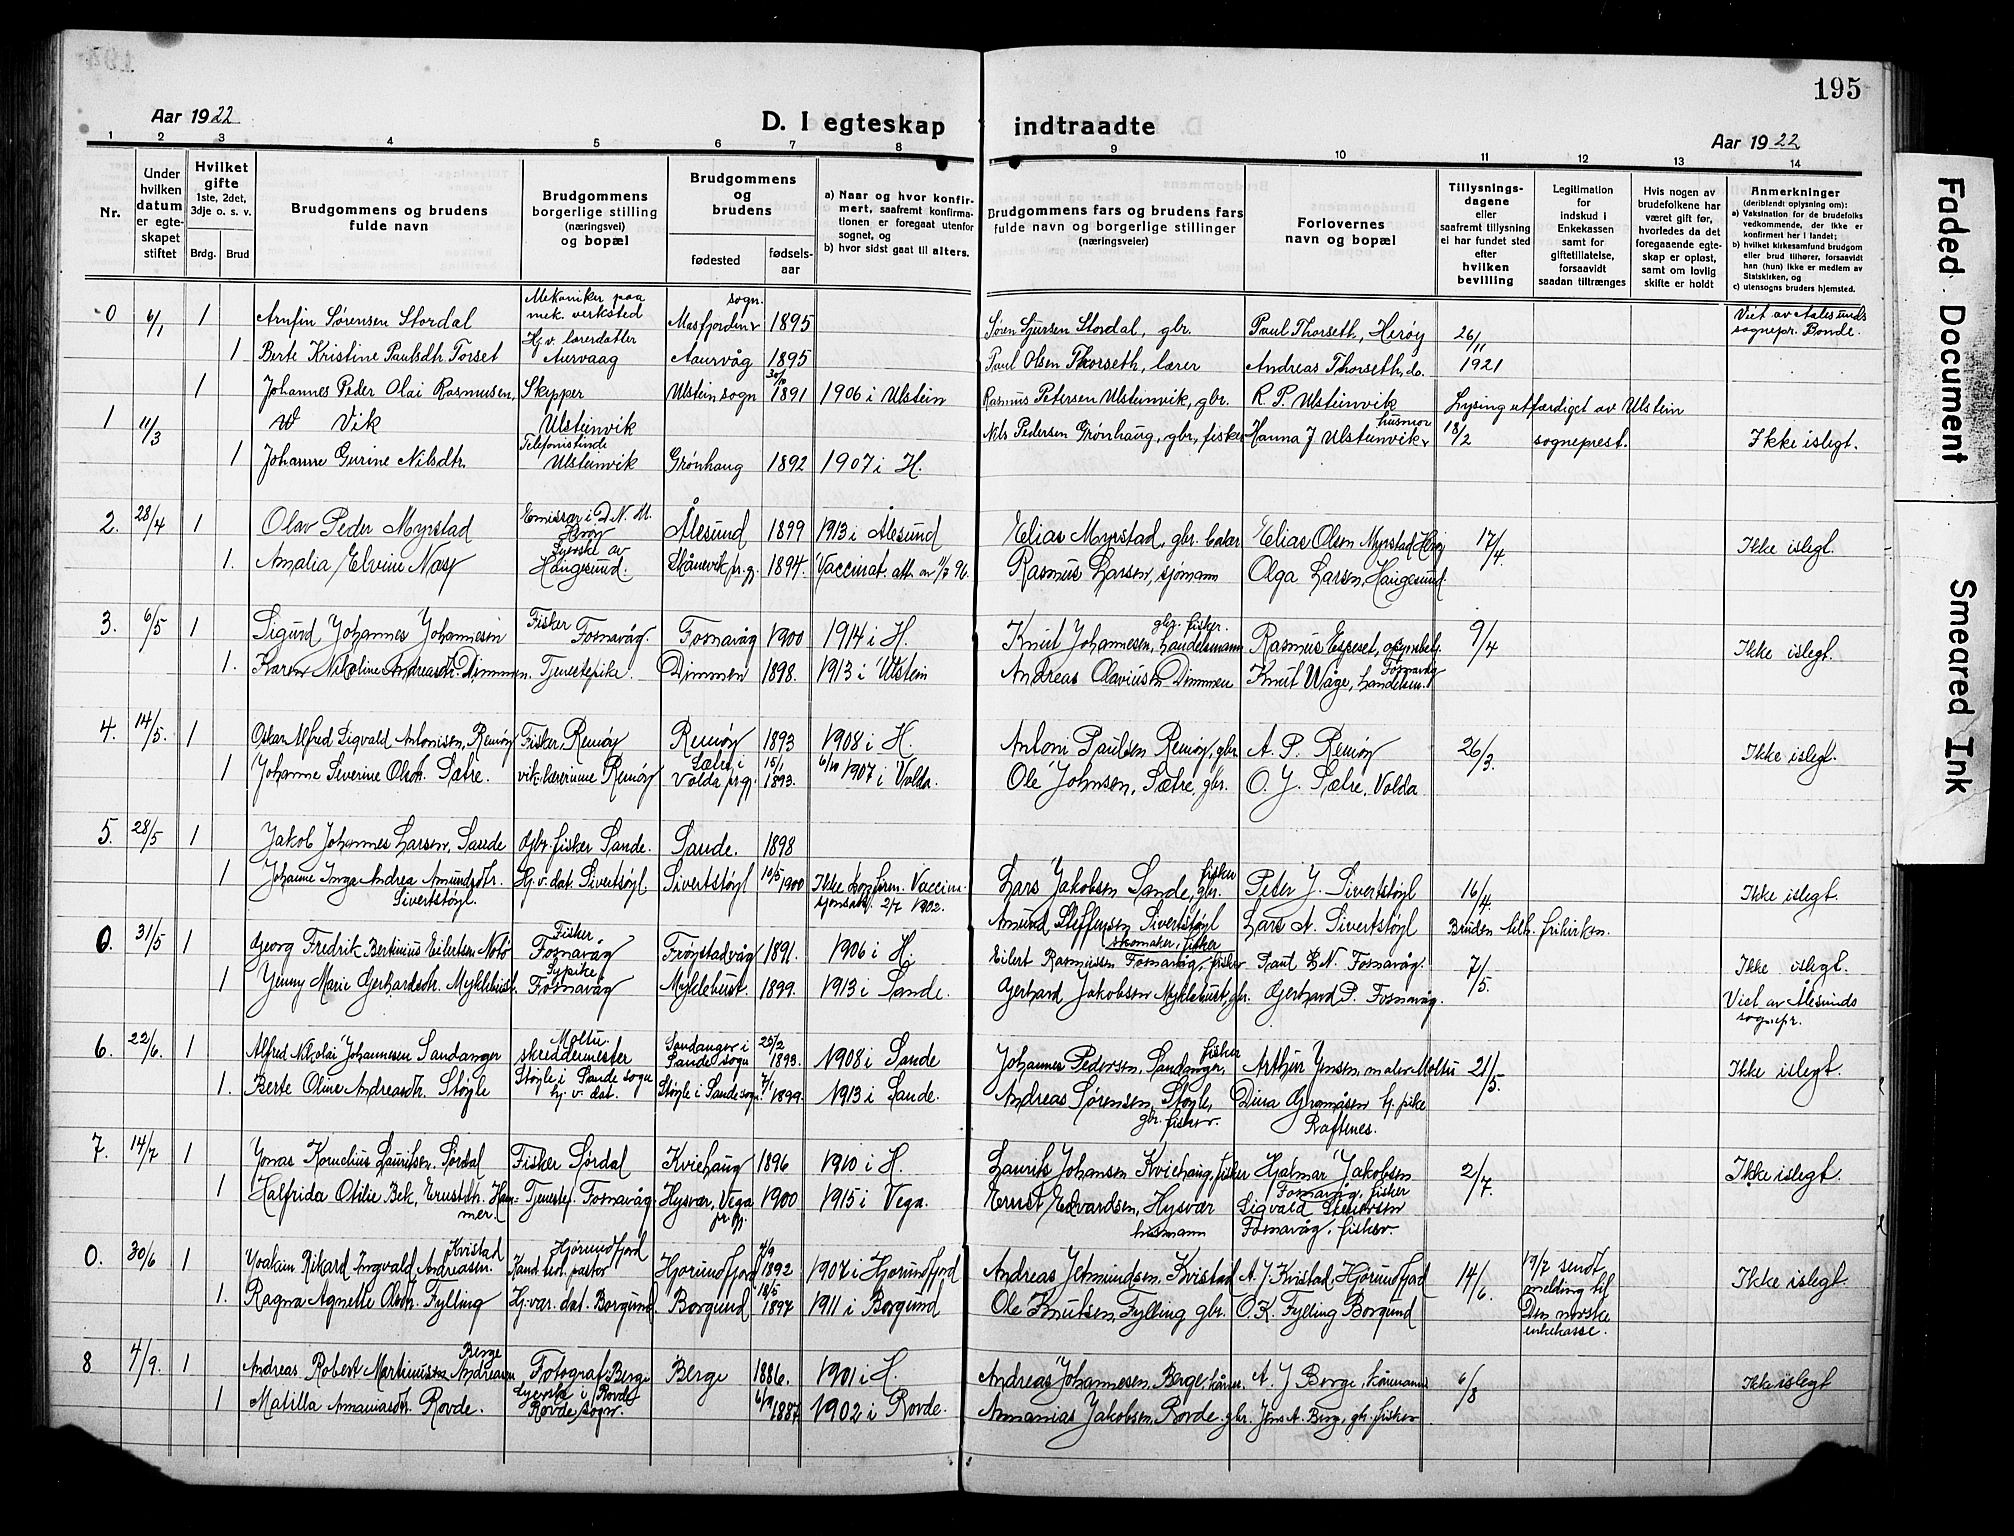 195
Aar 1922
D. I egteskap indtraadte
Aar 1922
1 2 3 4 5 6 7 8 9 10 11 12 13 14
Nr.
Under hvilken datum er egteskapet stiftet
Hvilket gifte 1ste, 2det, 3dje o. s. v.
Brdg. Brud
Brudgommens og brudens fulde navn
Brudgommens borgerlige stilling (næringsvei) og bopæl
Brudgommens og brudens
fødested
fødsels-aar
a) Naar og hvor konfirmert, saafremt konfirmationen er foregaat utenfor sognet, og
b) hvor sidst gaat til alters.
Brudgommens fars og brudens fars fulde navn og borgerlige stillinger (næringsveier)
Forlovernes navn og bopæl
Tillysningsdagene eller saafremt tillysning ei har fundet sted efter hvilken bevilling
Legitimation for indskud i Enkekassen samt for giftetillatelse, forsaavidt saadan tiltrænges
Hvis nogen av brudefolkene har været gift før, hvorledes da det foregaaende egteskap er opløst, samt om lovlig skifte er holdt
Anmerkninger (deriblandt oplysning om):
a) Vaksination for de brudefolks vedkommende, der ikke er konfirmert her i landet;
b) hvilket kirkesamfund brudgom eller brud tilhører, forsaavidt han (hun) ikke er medlem av Statskirken, og
c) utensogns bruders hjemsted.
0 6/1 1 Arnfin Sørensen Stordal Mekaniker paa mek. verksted Masfjorden sogn. 1895 Søren Sjursen Stordal, gbr. Paul Thorseth, Herøy 26/11 Viet av Aalesunds sognepr. Bonde.
1 Berte Kristine Paulsdtr. Torset Hj.v. lærerdatter Aurvaag Aaurvåg 1895 Paul Olsen Thorseth, lærer Andreas Thorseth, do. 1921
1 11/3 1 Johannes Peder Olai Rasmusen, Vik Skipper Ulsteinvik Ulstein sogn 30/10 1891 1906 i Ulstein Rasmus Petersen Ulsteinvik, gbr. R. P. Ulsteinvik Lysing utfærdiget av Ulstein
1 Johanne Gurine Nilsdtr. Telefonistinde Ulsteinvik Grønhaug 1892 1907 i H. Nils Pedersen Grønhaug, gbr, fisker Hanna J Ulsteinvik husmor 18/2 sogneprest. Ikke i slegt.
2. 28/4 1 Olav Peder Myrstad Emissær i D.N.M. Herøy Ålesund 1899 1913 i Ålesund Elias Myrstad, gbr. Elias Olsen Myrstad Herøy 17/4. Ikke i slegt.
1. Amalia Elvine Næs Syerske av Haugesund. Skånevik pr.gj. 1894. Vaccinat. att. av 11/7 96. Rasmus Larsen, sjømann Olga Larsen, Haugesund.
3. 6/5 1 Sigurd Johannes Johannesen Fisker Fosnavåg. Fosnavåg 1900 1914 i H. Knut Johannesen, gbr. fisker. handelsmann Rasmus Espeset, 9/4 Ikke i slegt.
1. Karen Nikoline Andreasdtr. Dimmen. Tjenestepike. Dimmen 1898. 1913 i Ulstein Andreas Olaviusen Dimmen Knut Våge, Fosnavåg handelsm.
4. 14/5. 1 Oskar Alfred Sigvald Antonisen, Remøy Fisker, Remøy Remøy 1893 1908 i H. Anton Paulsen Remøy, gbr. A. P. Remøy 26/3. Ikke i slegt.
1 Johanne Severine Olsdtr. Sætre. vik. lærerinne Remøy Sætre i Volda pr.gj. 15/1 1893. 6/10 1907 i Volda. Ole Johnsen, Sætre, gbr. O. J. Sætre, Volda
5. 28/5 1 Jakob Johannes Larsen, Sande Gbr. fisker Sande. Sande. 1898 Lars Jakobsen Sande, gbr. fisker Peter J. Sivertstøyl 16/4. Ikke i slegt.
1 Johanne Inga Andrea Amundsdtr. Sivertstøyl. Hj.v. dat. Sivertstøyl Sivertstøyl 10/5 1900 Ikke konfirm. Vaccinasjonsatt. 2/7 1902. Amund Steffensen Sivertstøyl Lars A. Sivertstøyl Bruden tilh. frikirken.
0. 31/5 1 Georg Fredrik Bertinius Eilertsen Notø Fisker Fosnavåg Frøystadvåg 1891. 1906 i H. Eilert Rasmussen Fosnavåg, skomaker, fisker Paul L. N. Fosnavåg. 7/5. Ikke i slegt.
1 Jenny Marie Gerhardsdtr. Myklebust. Sypike Fosnavåg Myklebust. 1899. 1913 i Sande. Gerhard Jakobsen Myklebust, gbr. Gerhard P. Fosnavåg. Viet av Ålesunds sognepr.
6. 22/6. 1 Alfred Nikolai Johannesen Sandanger Moltu. skreddermester Sandanger i Sande sogn 25/2 1893. 1908 i Sande Johannes Pedersen, Sandanger, fisker Arthur Jensen, maler Moltu 21/5. Ikke i slegt.
1. Berte Oline Andreasdtr. Støyle Støyle i Sande sogn hj. v. dat. Støyle i Sande sogn 7/1 1899. 1913 i Sande. Andreas Sørensen, Støyle, gbr. fisker. Dina Gramåsen hj. pike Raftenes.
7. 14/7 1 Jonas Kornelius Lauritsen. Sørdal Fisker Sørdal Kviehaug 1896 1910 i H. Laurits Johansen Kviehaug, fisker Hjalmar Jakobsen Fosnavåg, fisker 2/7. Ikke i slegt.
1 Halfrida Otilie Bek, Ernstdtr. Hammer. Tjenestep. Fosnavåg Hysvær, Vega pr. gj. 1900 1915 i Vega. Ernst Edvardsen, Hysvær husmann Sigvald Fosnavåg. fisker.
0. 30/6 1 Joakim Rikard Ingvald Andreasen. Kvistad Hjørundfjord Kand. teol. pastor Hjørundfjord 4/9 1892 1907 i Hjørundfjord Andreas Jetmundsen. Kvistad A. J. Kvistad, Hjørundfjord 14/6. 19/7 sendt melding til Den norske enkekasse. Ikke i slegt.
1. Ragna Agnette Olsdtr. Fylling Hj.vær. dat. Borgund Borgund 18/5 1897 1911 i Borgund Ole Knutsen, Fylling gbr. O. K. Fylling Borgund
8 4/9. 1 Andreas Robert Martinussen Andreasen Berge Fotograf Berge Berge 1886. 1901 i H. Andreas Johannesen. Berge, A. J. Berge, 6/8 Ikke i slegt
1 Matilla Ananiasdtr. Rovde. Syerske i Rovde Rovde sogn. 6/9 1887 1902 i Rovde. Annanias Jakobsen. Rovde. gbr. Jens A. Berg, gbr. fisker
Faded Document
Smeared Ink